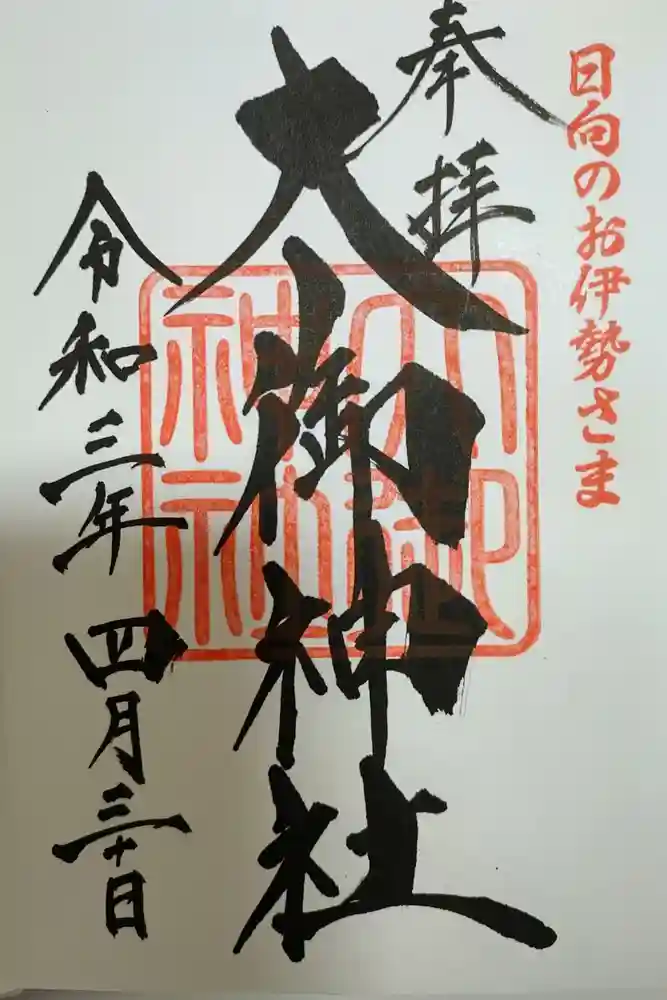 日向のお伊勢さま
奉拝
大御神社
大御神社
令和三年四月三十日